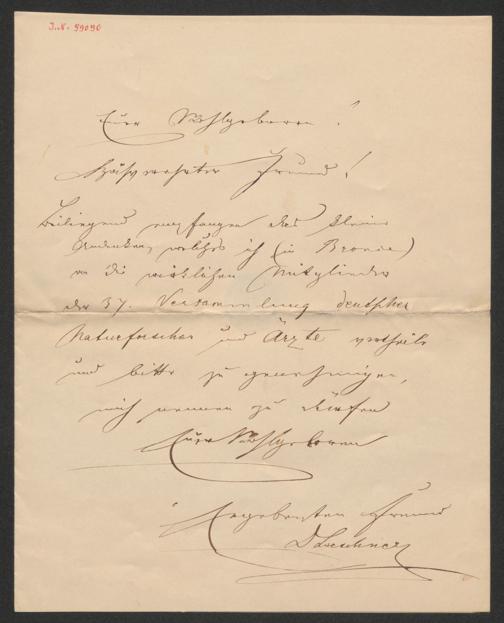 I.N. 99090
Euer Wohlgeboren!
Hochverehrter Freund!
Beiliegend empfangen das kleine
Andenken, welches ich (in Bronce)
an die wirklichen Mitglieder
der 37. Versammlung deutscher
Naturforscher und Ärzte vertheile
und bitte zu genehmigen,
mich nennen zu dürfen
Euer Wohlgeboren
Ergebensten Freund